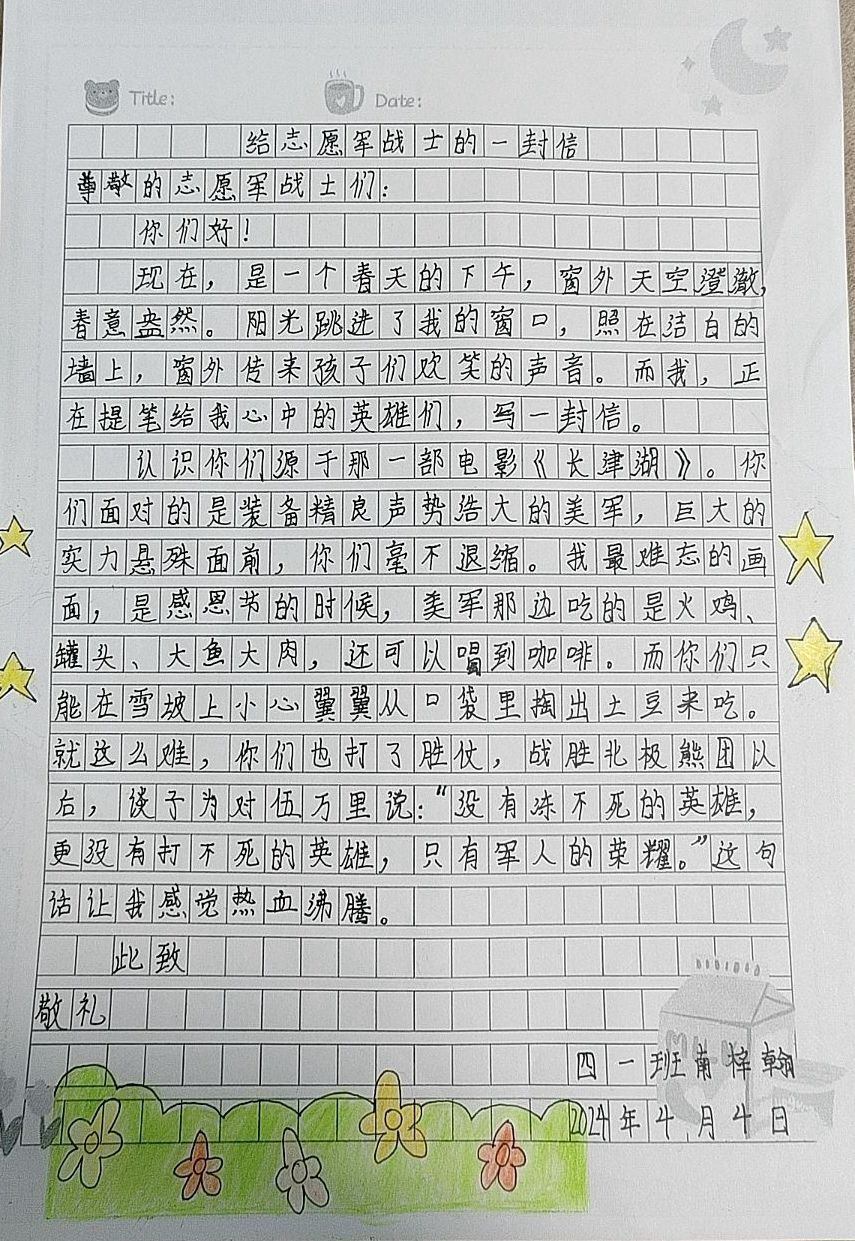 Title:
Date:
给志愿军战士的一封信
尊敬的志愿军战士们：
你们好！
现在，是一个春天的下午，窗外天空澄澈，
春意盎然。阳光跳进了我的窗口，照在洁白的
墙上，窗外传来孩子们欢笑的声音。而我，正
在提笔给我心中的英雄们，写一封信。
认识你们源于那一部电影《长津湖》。你
们面对的是装备精良声势浩大的美军，巨大的
实力悬殊面前，你们毫不退缩。我最难忘的画
面，是感恩节的时候，美军那边吃的是火鸡、
罐头、大鱼大肉，还可以喝到咖啡。而你们只
能在雪坡上小心翼翼从口袋里掏出土豆来吃。
就这么难，你们也打了胜仗，战胜北极熊团以
后，谈子为对伍万里说：“没有冻不死的英雄，
更没有打不死的英雄，只有军人的荣耀。”这句
话让我感觉热血沸腾。
此致
敬礼
MILK
四一班南梓翰
2024年4月4日